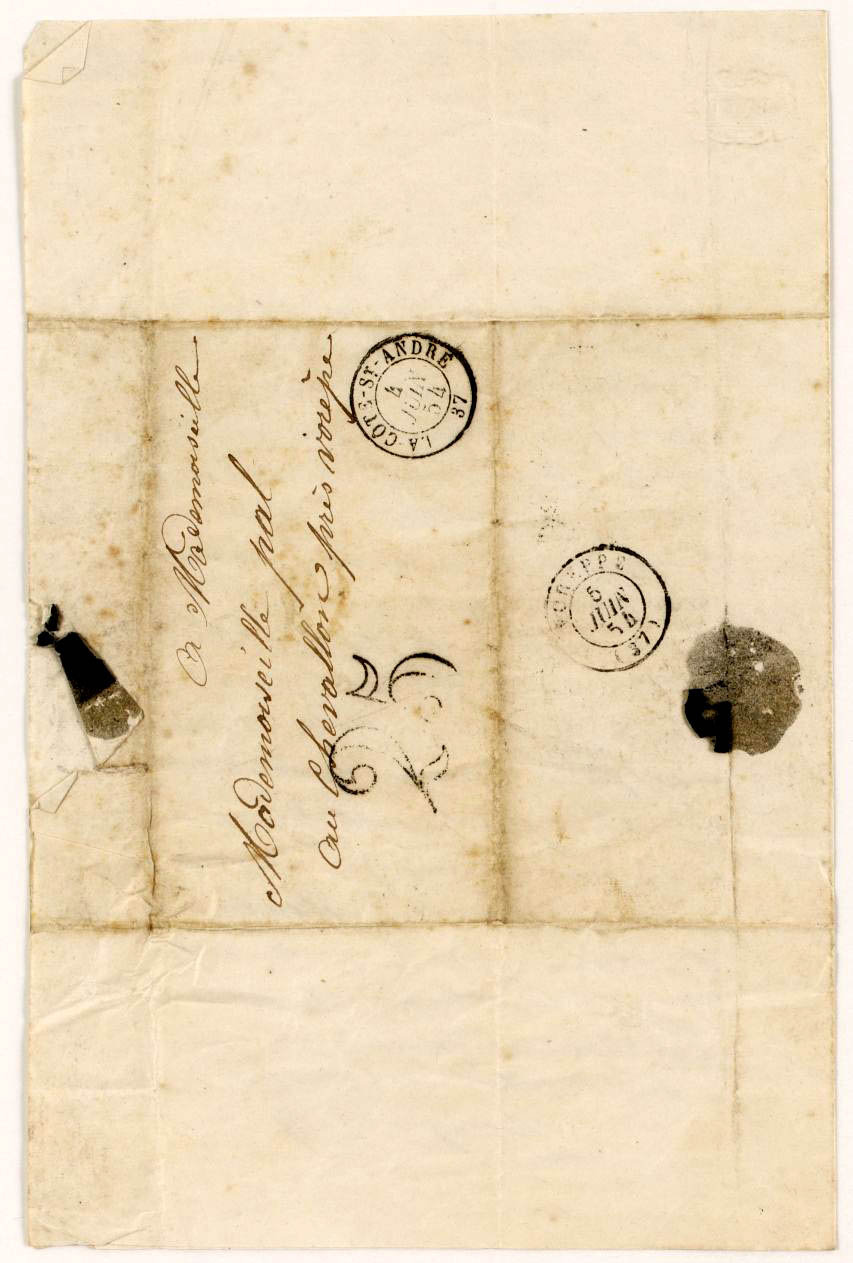 a Mademoiselle
Mademoiselle pal
au Chevallon près vorépe
25
LA-CÔTE-ST-ANDRÉ
4
JUIN
54
37
VOREPPE
5
JUIN
54
(37)